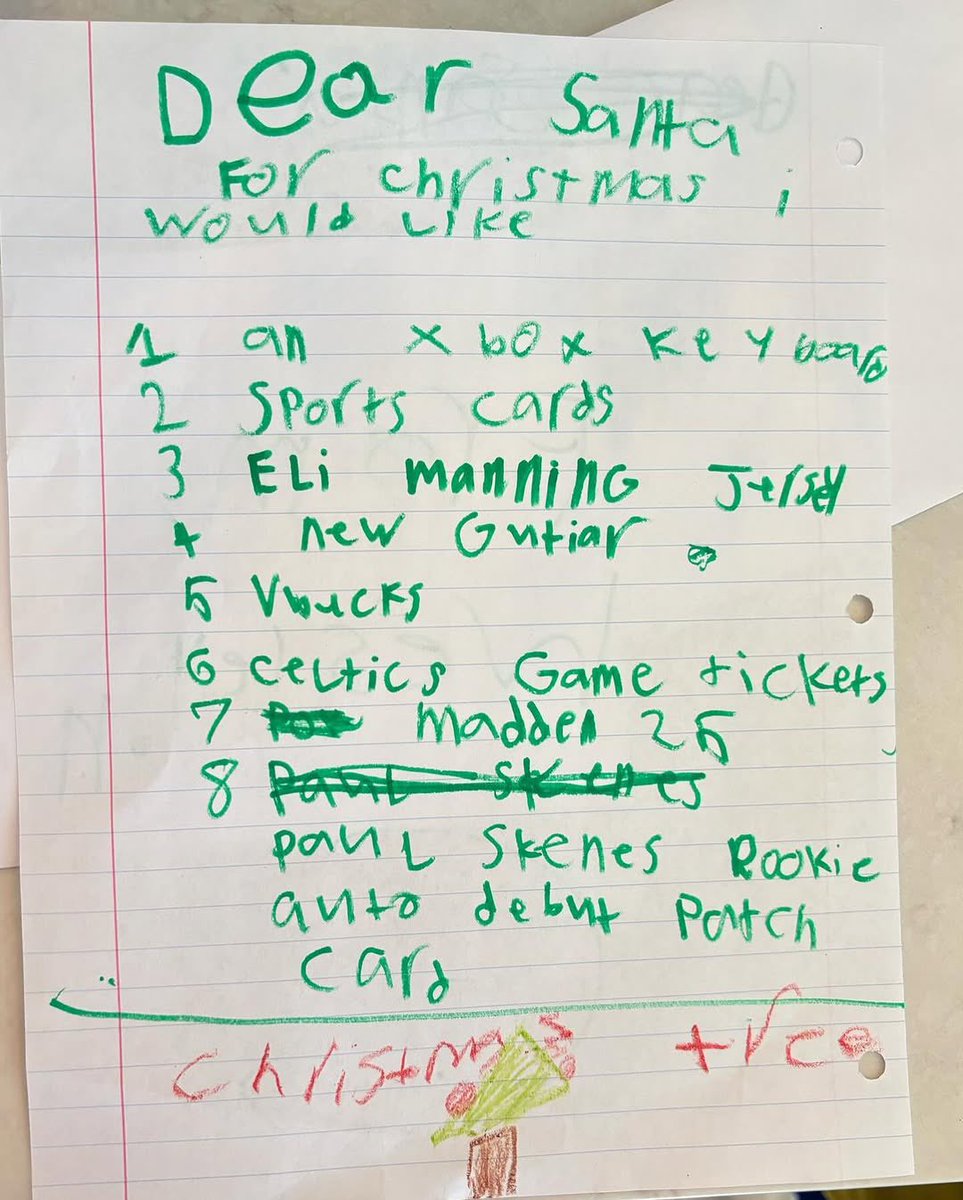 Dear Santa
For christmas i
would like
1 an xbox keyboard
2 Sports cards
3 ELi manning Jersey
4 new Gutiar
5 Vbucks
6 celtics Game tickets
7 madden 25
8 Paul Skenes
paul skenes Rookie
auto debut Patch
card
christmas tree